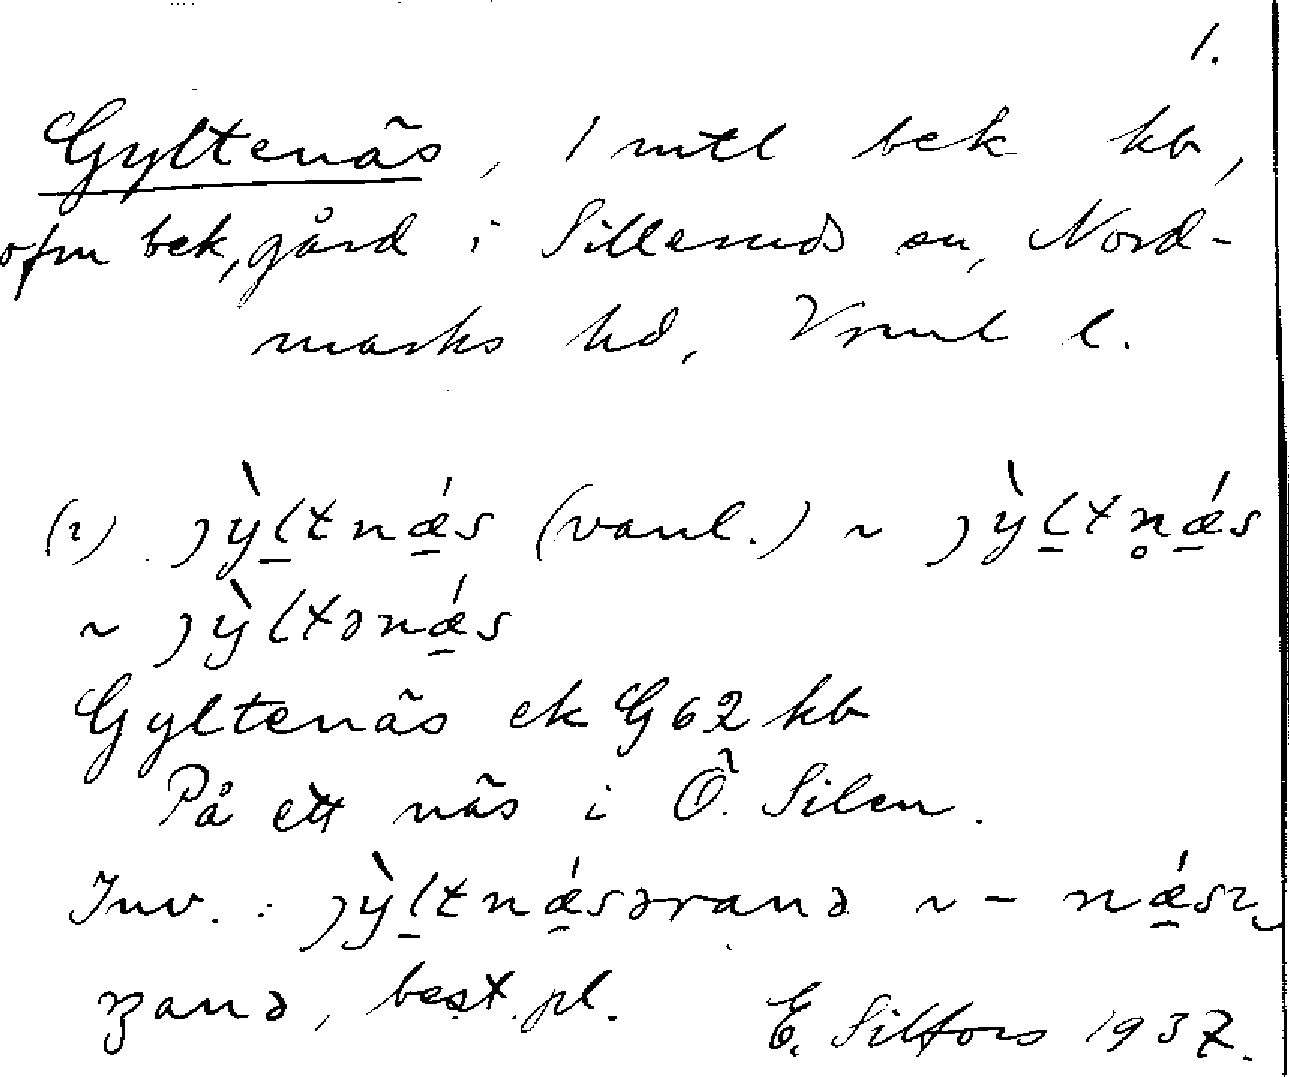 1.
Gyltenäs, 1 mtl bek kb,
ofm bek, gård i Silleruds sn, Nord-
marks hd, Vrml l.
(i) ȷỳl̲tnǽ̲s (vanl.) ~ ȷỳl̲tn̥ǽ̲s
~ ȷỳltənǽ̲s
Gyltenäs ek G62 kb
På ett näs i Ö. Silen.
Inv.: ȷỳl̲tnǽ̲səranə ~ - nǽ̲sɿ
ɿanə, best. pl. E. Silfors 1937.